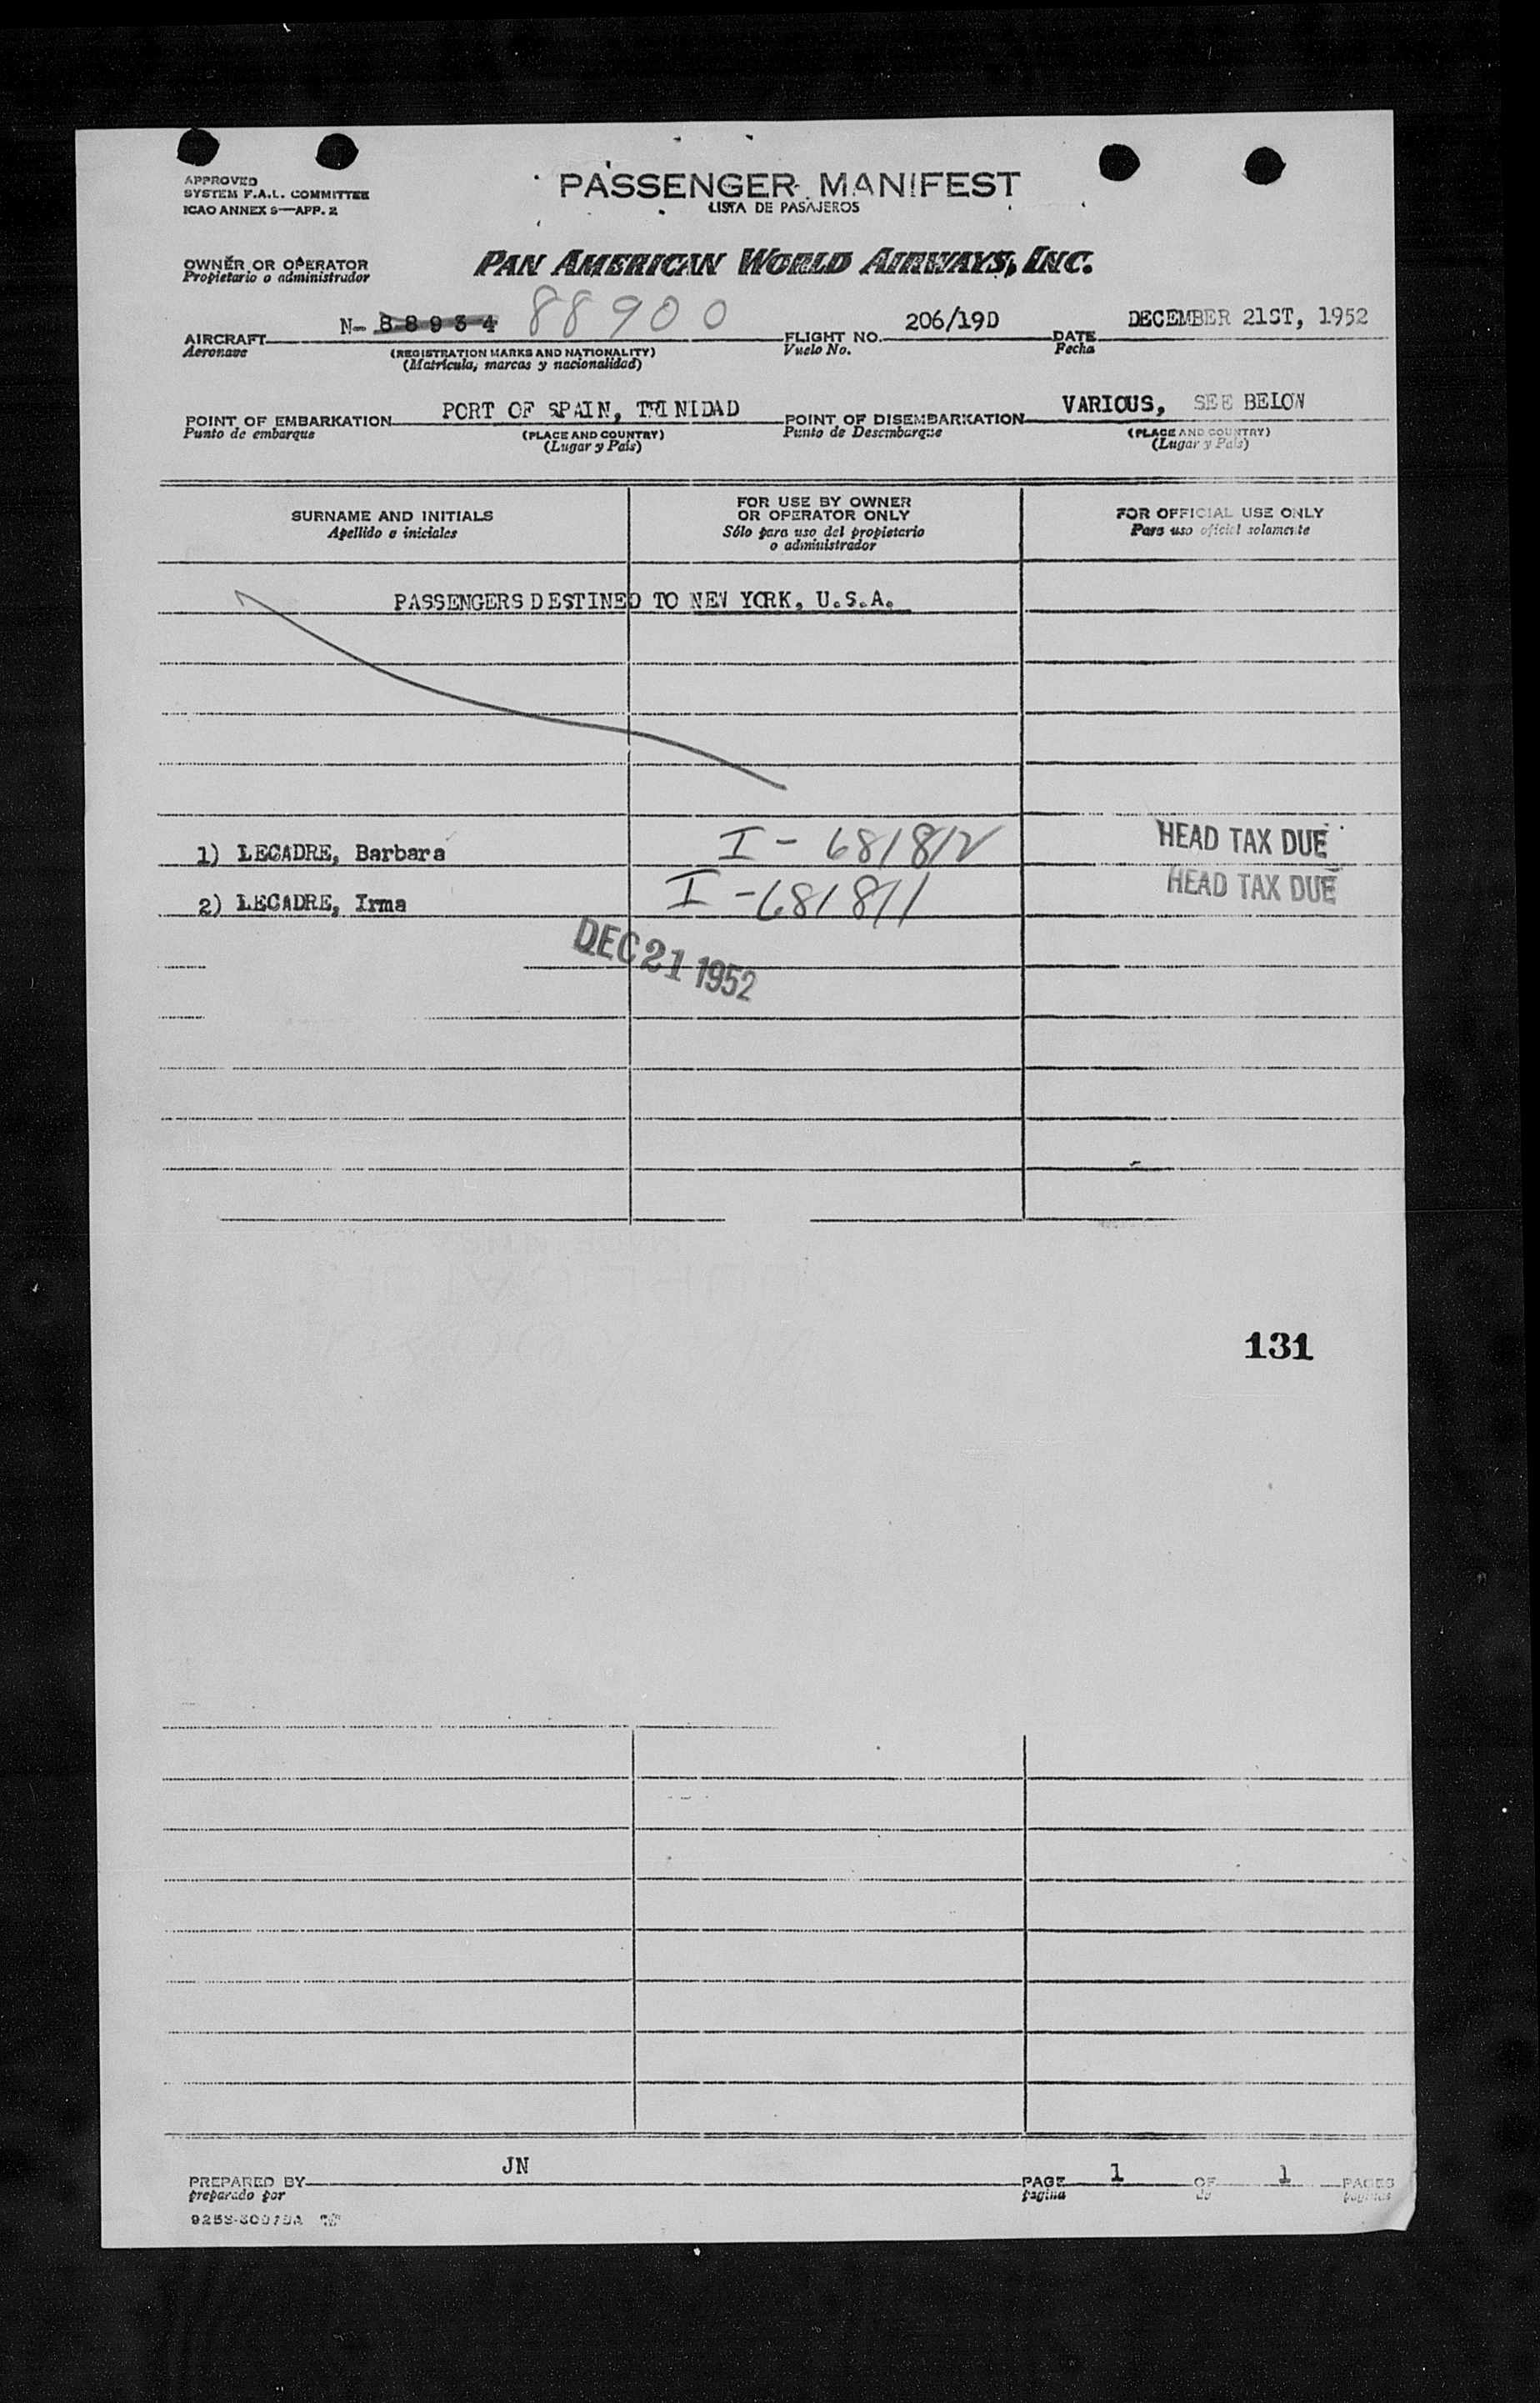 APPROVED
SYSTEM F.A.L. COMMITTEE
ICAO ANNEX 9—APP. 2
PASSENGER MANIFEST
LISTA DE PASAJEROS
OWNER OR OPERATOR
Propietario o administrador
PAN AMERICAN WORLD AIRWAYS, INC.
AIRCRAFT N- 88934 88900 FLIGHT NO. 206/19D DATE DECEMBER 21ST, 1952
Aeronave (REGISTRATION MARKS AND NATIONALITY) Vuelo No. Fecha
(Matrícula, marcas y nacionalidad)
POINT OF EMBARKATION PORT OF SPAIN, TRINIDAD POINT OF DISEMBARKATION VARIOUS, SEE BELOW
Punto de embarque (PLACE AND COUNTRY) Punto de Desembarque (PLACE AND COUNTRY)
(Lugar y País) (Lugar y País)
SURNAME AND INITIALS
Apellido e iniciales
FOR USE BY OWNER
OR OPERATOR ONLY
Sólo para uso del propietario
o administrador
FOR OFFICIAL USE ONLY
Para uso oficial solamente
PASSENGERS DESTINED TO NEW YORK, U.S.A.
1) LECADRE, Barbara I - 681812 HEAD TAX DUE
2) LECADRE, Irma I - 681811 HEAD TAX DUE
DEC 21 1952
131
PREPARED BY JN PAGE 1 OF 1 PAGES
preparado por página de páginas